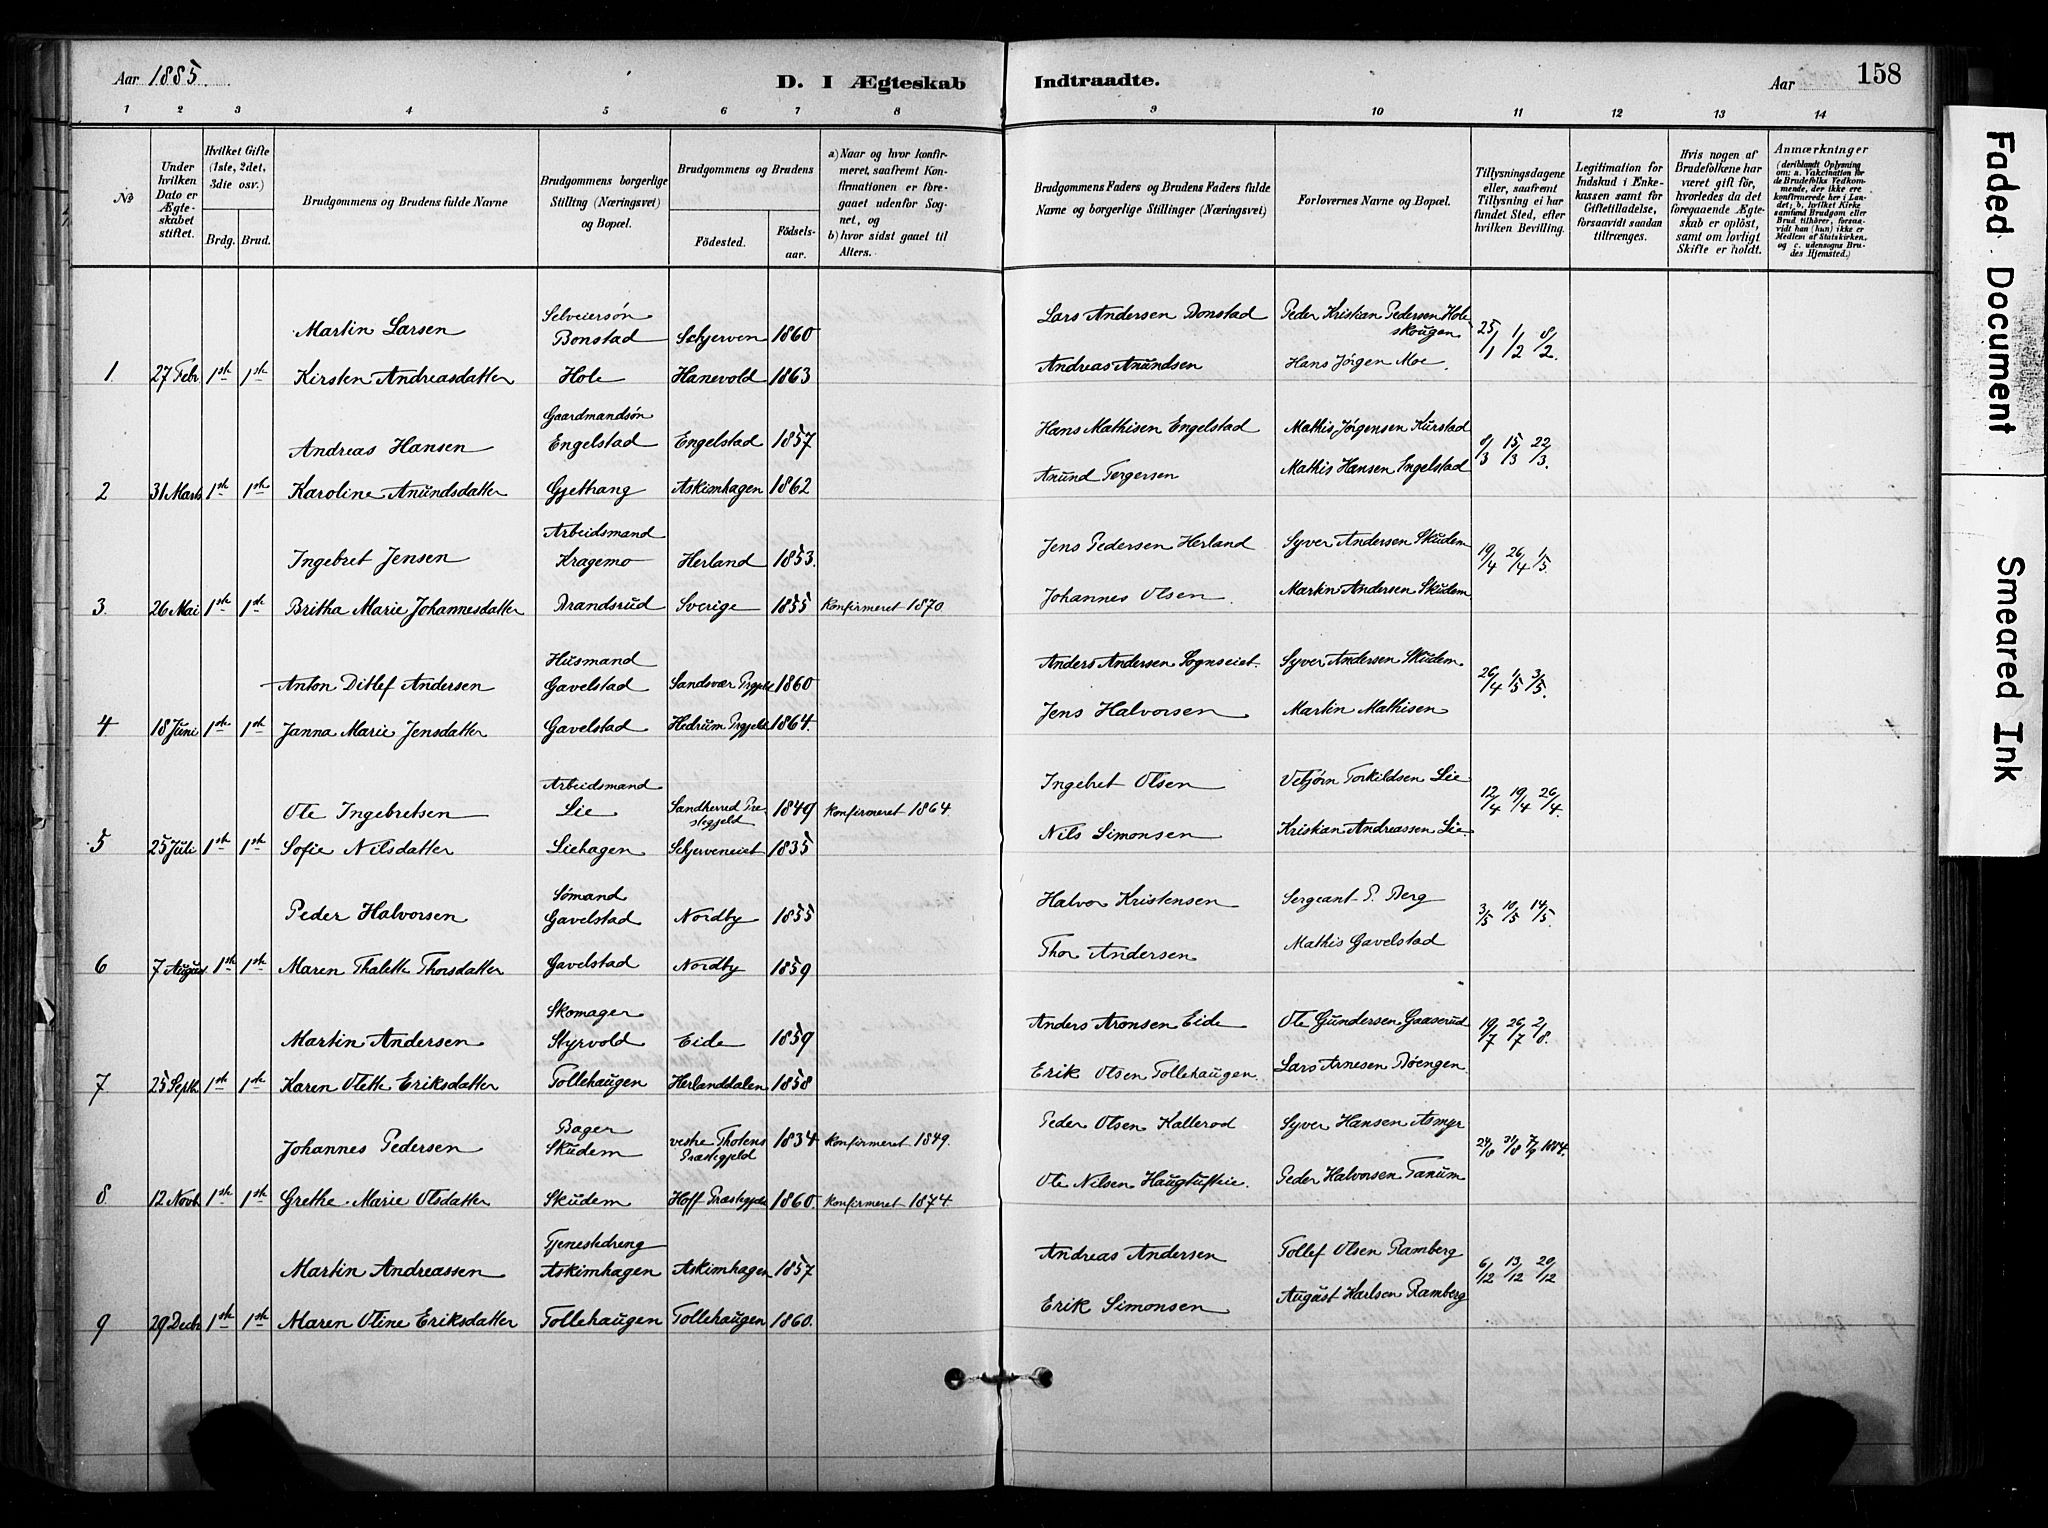 Aar 1885.
D. I Ægteskab Indtraadte.
Aar
158
1 2 3 4 5 6 7 8 9 10 11 12 13 14
No
Under hvilken Dato er Ægteskabet stiftet.
Hvilket Gifte (1ste, 2det, 3die osv.)
Brdg. Brud.
Brudgommens og Brudens fulde Navne
Brudgommens borgerlige Stilling (Næringsvei) og Bopæl.
Brudgommens og Brudens
Födested.
Födselsaar.
a) Naar og hvor konfirmeret, saafremt Konfirmationen er foregaaet udenfor Sognet, og
b) hvor sidst gaaet til Alters.
Brudgommens Faders og Brudens Faders fulde Navne og borgerlige Stillinger (Næringsvei)
Forlovernes Navne og Bopæl.
Tillysningsdagene eller, saafremt Tillysning ei har fundet Sted, efter hvilken Bevilling.
Legitimation for Indskud i Enkekassen samt for Giftetilladelse, forsaavidt saadan tiltrænges.
Hvis nogen af Brudefolkene har været gift för, hvorledes da det foregaaende Ægteskab er oplöst, samt om lovligt Skifte er holdt.
Anmærkninger (deriblandt Oplysning om: a. Vakcination for de Brudefolks Vedkommende, der ikke ere konfirmerede her i Landet; b. hvilket Kirkesamfund Brudgom eller Brud tilhörer, forsaavidt han (hun) ikke er Medlem af Statskirken, og c. udensogns Brudes Hjemsted.)
Martin Larsen Selveiersön Bonstad Schjerven 1860 Lars Andersen Bonstad Peder Kristian Pedersen Holeskougen 25/1 1/2 8/2.
1. 27 Febr. 1ste 1ste Kirsten Andreasdatter Hole Hanevold 1863 Andreas Anundsen Hans Jörgen Moe.
Andreas Hansen Gaardmandsön Engelstad Engelstad 1857 Hans Mathisen Engelstad Mathis Jörgensen Kurstad 8/3 15/3 22/3.
2 31 Marts 1ste 1ste Karoline Anundsdatter Gjethang Askimhagen 1862 Anund Tergersen Mathis Hansen Engelstad
Ingebret Jensen Arbeidsmand Kragemo Herland 1853. Jens Pedersen Herland Syver Andersen Skudem 19/4 26/4 1/5.
3. 26 Mai 1ste 1ste Britha Marie Johannesdatter Brandsrud Sverige 1855 Konfirmeret 1870. Johannes Olsen Martin Andersen Skudem
Anton Ditlef Andersen Husmand Gavelstad Sandsvær Prgjeld 1860 Anders Andersen Sognseiet. Syver Andersen Skudem. 26/4 1/5 3/5.
4 18 Juni 1ste 1ste Janna Marie Jensdatter Gavelstad Hedrum Prgjeld 1864. Jens Halvorsen Martin Mathisen
Ole Ingebretsen Arbeidsmand Lie Sandherred Præstegjeld 1849 Konfirmeret 1864. Ingebret Olsen Vebjörn Torkildsen Lie 12/4 19/4 26/4.
5 25 Juli 1ste 1ste Sofie Nilsdatter Liehagen Schjerveneiet 1835 Nils Simonsen Kristian Andreassen Lie.
Peder Halvorsen Sömand Gavelstad Nordby 1855 Halvor Kristensen Sergeant P. Berg 3/5 10/5 14/5.
6 7 August 1ste 1ste Maren Thalette Thorsdatter Gavelstad Nordby 1859 Thor Andersen Mathis Gavelstad
Martin Andersen Skomager Styrvold Eide 1859 Anders Aronsen Eide Ole Gundersen Gaaserud 19/7 26/7 2/8.
7. 25 Septb. 1ste 1ste Karen Olette Eriksdatter Tollehaugen Herlanddalen 1858 Erik Olsen Tollehaugen. Lars Arnesen Böengen.
Johannes Pedersen Bager Skudem vestre Thotens Præstegjeld 1834 Konfirmeret 1849. Peder Olsen Kallerod Syver Hansen Asmyr 24/8 31/8 7/9 1884.
8. 12 Novb. 1ste 1ste Grethe Marie Olsdatter Skudem Hoff Præstegjeld 1860. Konfirmeret 1874. Ole Nilsen Haugtufteie. Peder Halvorsen Tanum
Martin Andreassen Tjenestedreng Askimhagen Askimhagen 1857 Andreas Andersen Tollef Olsen Ramberg 6/12 13/12 20/12
9 29 Decbr. 1ste 1ste Maren Oline Eriksdatter Tollehaugen Tollehaugen 1860. Erik Simonsen August Karlsen Ramberg
Faded Document
Smeared Ink